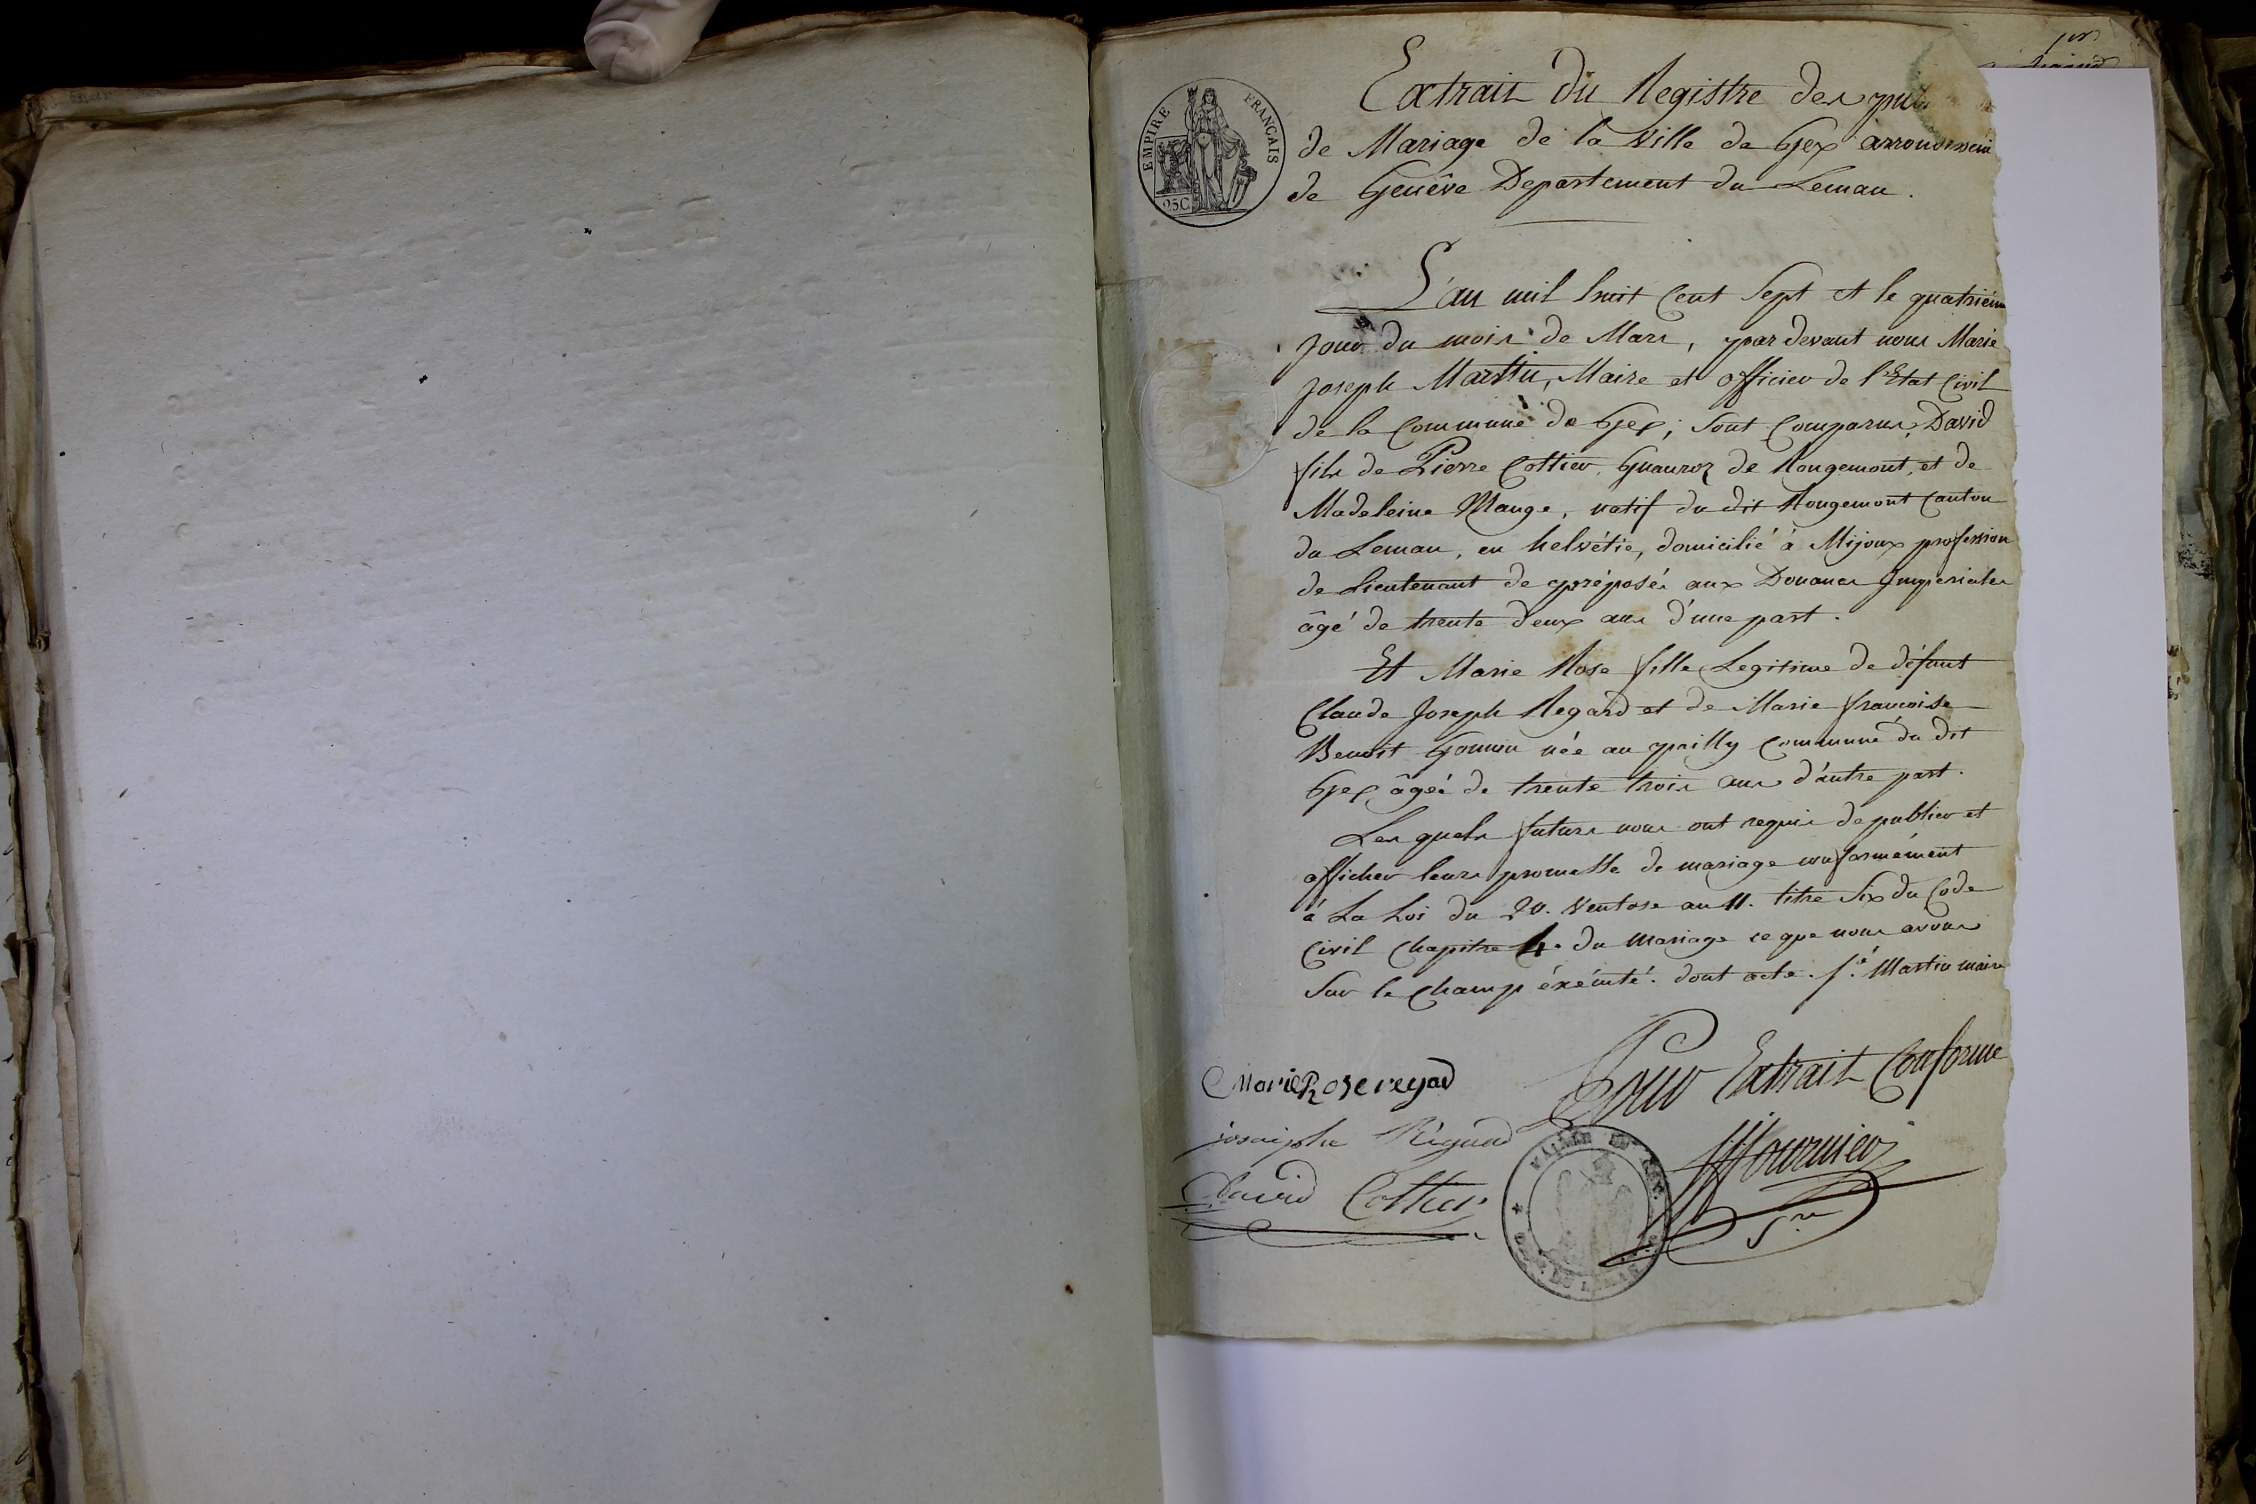 EMPIRE FRANÇAIS
25C
Extrait du Registre des pub
de Mariage de la Ville de Gex arrondissem
de Genêve Departement du Leman.
L'an mil huit Cent Sept et le quatriém
jour du mois de Mars, par devant nous Marie
Joseph Martin, Maire et officier de l'Etat Civil
de la Commune de Gex; sont Comparus, David
fils de Pierre Cottier, de Rougemont, et de
Madeleine Mange, natif du dit Rougemont Canton
du Leman, en helvétie, domicilié à Mijoux profession
de Lieutenant de préposés aux Douanes Imperiales
âgé de trente deux ans d'une part.
Et Marie Rose fille Legitime de défunt
Claude Joseph Regard et de Marie francoise
Benoit Gonnin née au prilly Commune du dit
Gex, âgée de trente trois ans d'autre part.
Les quels futurs nous ont requis de publier et
afficher leurs promesse de mariage conformément
à La Loi du 20. Ventose an 11. titre Six du Code
Civil Chapitre 4. du Mariage ce que nous avons
Sur le Champ éxécuté. dont acte. s.é Martin maire
Pour Extrait Conforme
Marie Rose regad
josaiphe Régad
David Cottier
Fournier
S.re
MAIRIE DE GEX
DEP. DU LEMAN